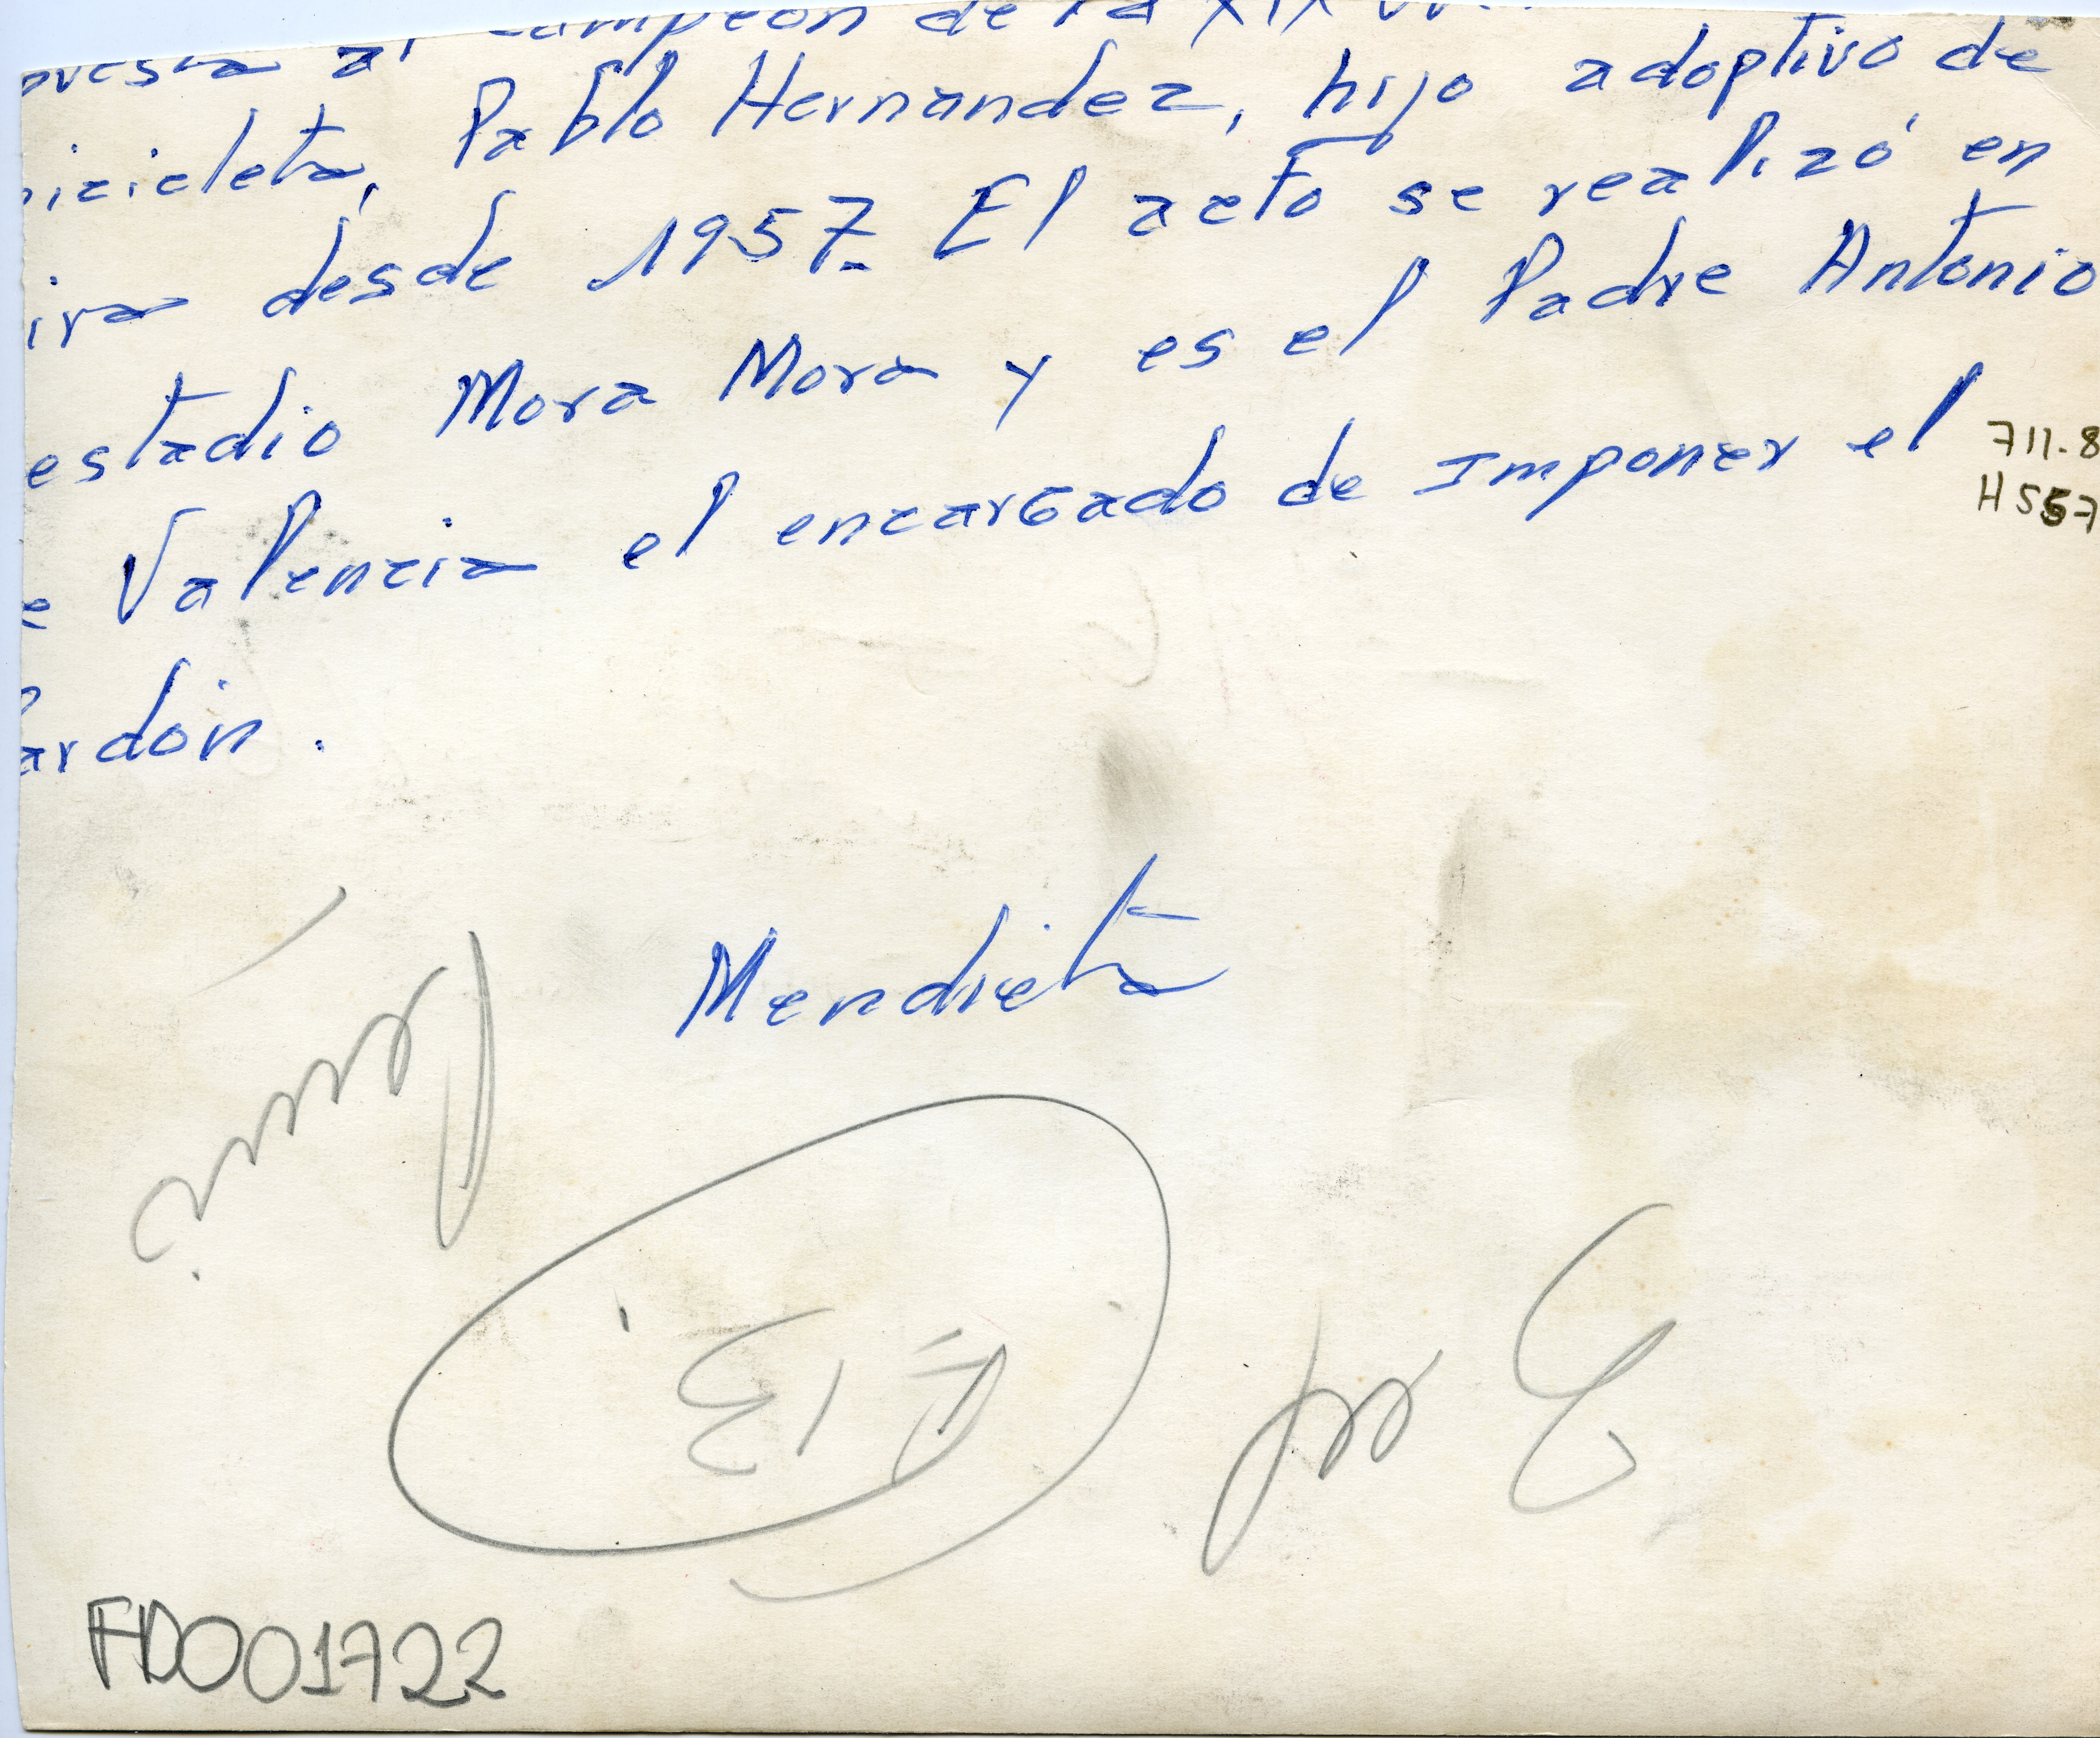 campeón de la XIX
bicicleta, Pablo Hernandez, hijo adoptivo de
ira desde 1957. El acto se realizó en
estadio Mora Mora y es el Padre Antonio
e Valencia el encargado de Imponer el
ardón.
711.8
H557
Mendieta
FD001722